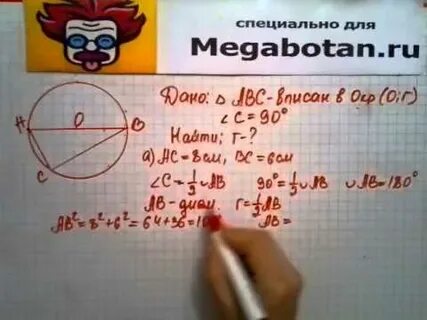 специально для
Megabotan.ru
Дано: △ ABC - вписан в Окр (O; r)
∠C = 90°
Найти: r - ?
а) AC = 8см, BC = 6см
∠C = ½ ∪AB 90° = ½ ∪AB ∪AB = 180°
AB - диам. r = ½ AB
AB² = 8² + 6² = 64 + 36 = 10 AB =
O
A B
C